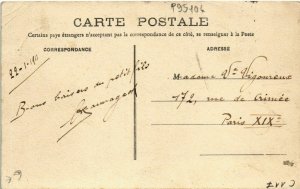 P95104
CARTE POSTALE
Certains pays étrangers n'acceptant pas la correspondance de ce côté, se renseigner à la Poste
CORRESPONDANCE
ADRESSE
22-1-10
Bons baisers du petit fils
Madame Vve Vigoureux
172, rue de Crimée
Paris XIXe